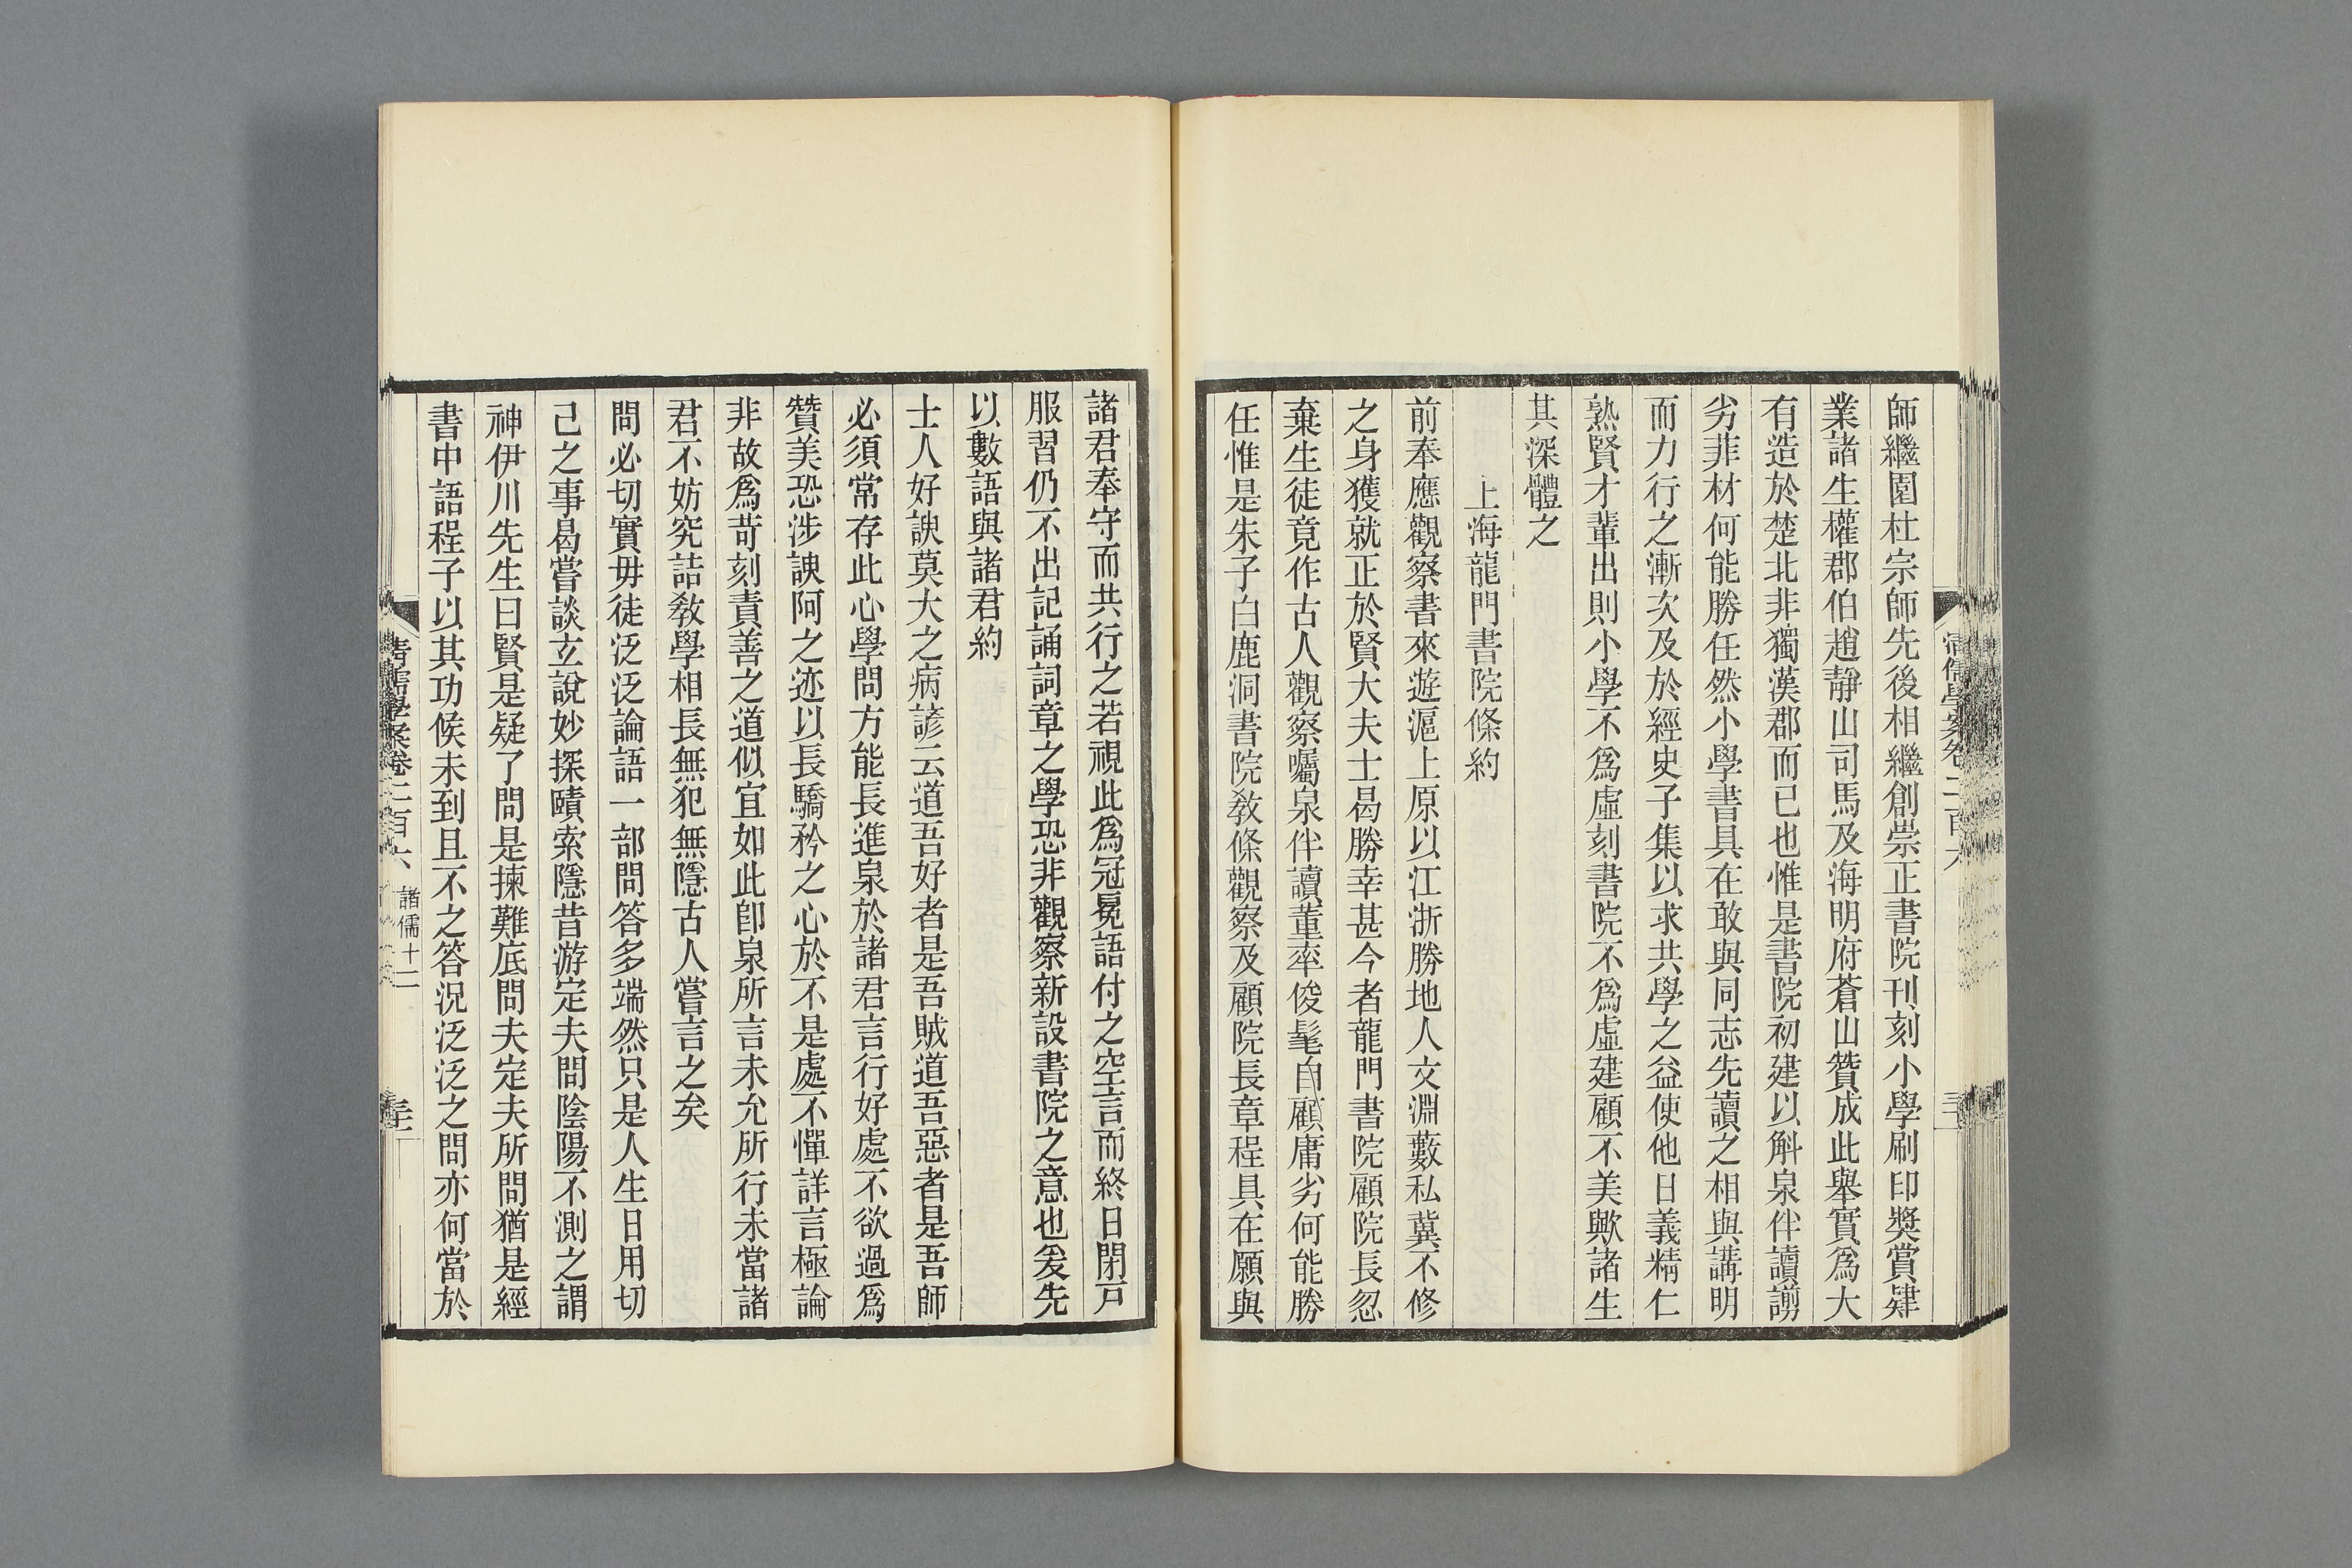 師繼園杜宗師先後相繼創崇正書院刊刻小學刷印獎賞肄
業諸生權郡伯趙靜山司馬及海明府蒼山贊成此舉實爲大
有造於楚北非獨漢郡而已也惟是書院初建以斛泉伴讀謭
劣非材何能勝任然小學書具在敢與同志先讀之相與講明
而力行之漸次及於經史子集以求共學之益使他日義精仁
熟賢才輩出則小學不爲虛刻書院不爲虛建顧不美歟諸生
其深體之
上海龍門書院條約
前奉應觀察書來遊滬上原以江浙勝地人文淵藪私冀不修
之身獲就正於賢大夫士曷勝幸甚今者龍門書院顧院長忽
棄生徒竟作古人觀察囑泉伴讀董率俊髦自顧庸劣何能勝
任惟是朱子白鹿洞書院敎條觀察及顧院長章程具在願與
諸君奉守而共行之若視此爲冠冕語付之空言而終日閉戸
服習仍不出記誦詞章之學恐非觀察新設書院之意也爰先
以數語與諸君約
士人好諛莫大之病諺云道吾好者是吾賊道吾惡者是吾師
必須常存此心學問方能長進泉於諸君言行好處不欲過爲
贊美恐涉諛阿之迹以長驕矜之心於不是處不憚詳言極論
非故爲苛刻責善之道似宜如此卽泉所言未允所行未當諸
君不妨究詰敎學相長無犯無隱古人嘗言之矣
問必切實毋徒泛泛論語一部問答多端然只是人生日用切
己之事曷嘗談玄說妙探賾索隱昔游定夫問陰陽不測之謂
神伊川先生曰賢是疑了問是揀難底問夫定夫所問猶是經
書中語程子以其功候未到且不之答況泛泛之問亦何當於
清儒學案卷二百六 諸儒十二